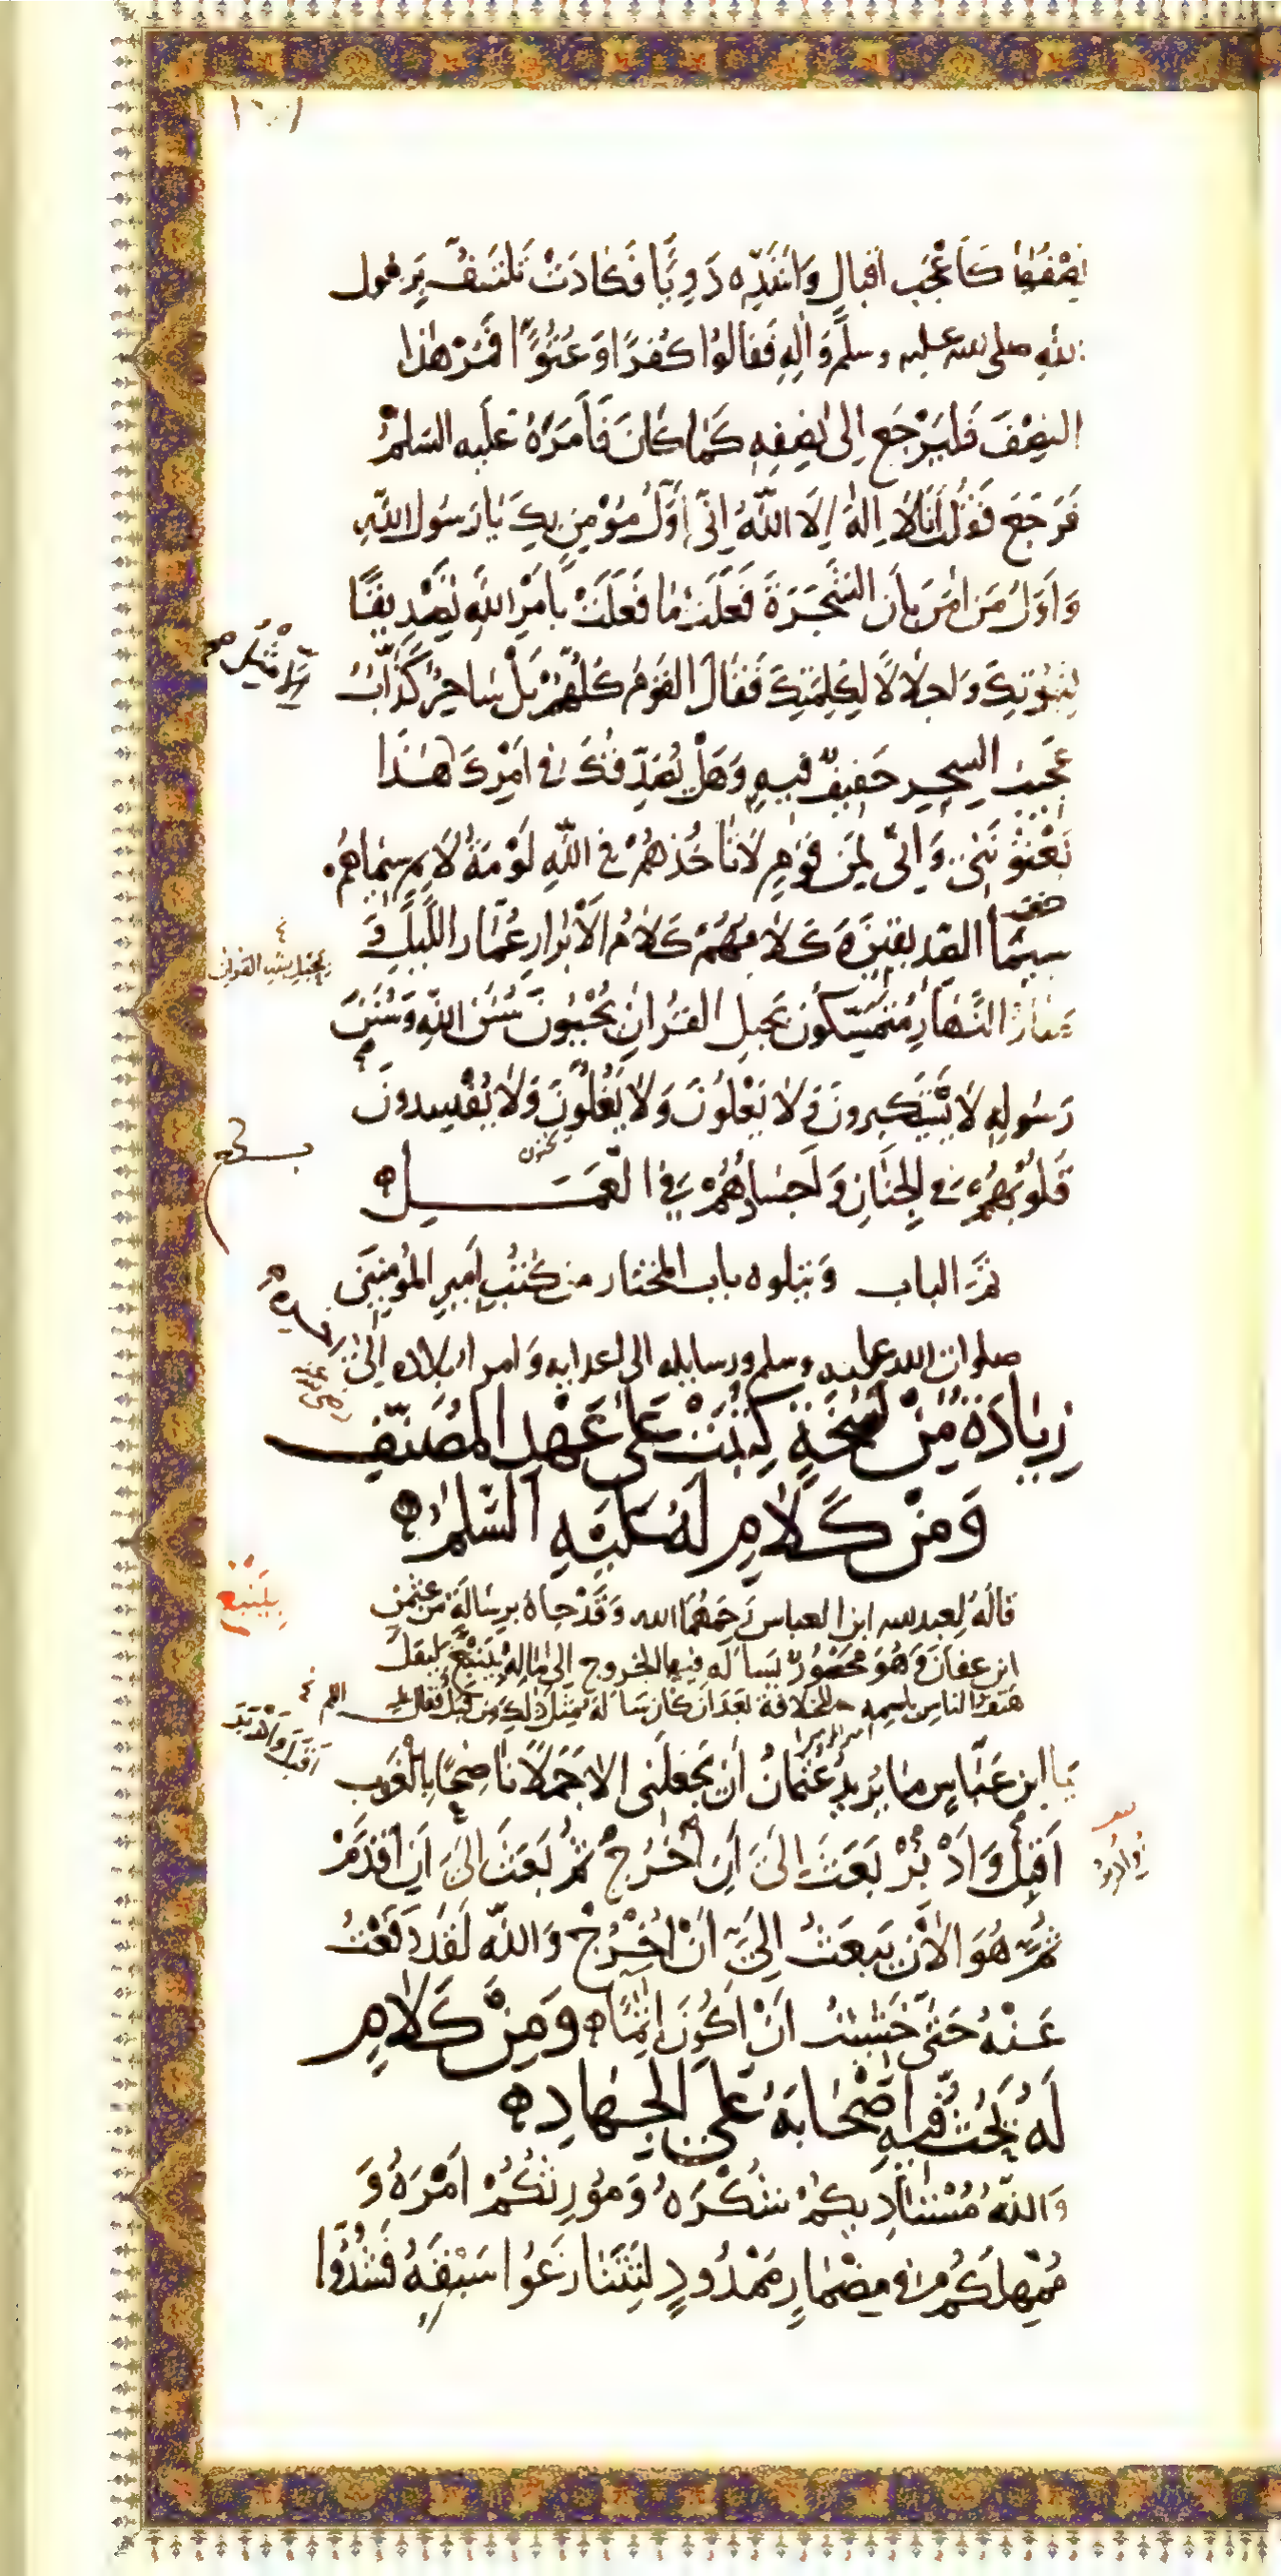 نصفها كأعجب اقبال وأشده دويا فكادت تلتف برسول
الله صلى الله عليه وسلم وآله فقالوا كفرا وعتوا فمر هذا
النصف فليرجع الى نصفه كما كان فأمره عليه السلم
فرجع فقلت أنا لا اله إلا الله إني أول مؤمن بك يا رسول الله
وأول من امن بأن الشجرة فعلت ما فعلت بأمر الله تصديقا
لنبوتك واجلالا لكلمتك فقال القوم كلهم بل ساحر كذاب
عجيب السحر خفيف فيه وهل يصدقك في امرك إلا مثل هذا
يعنونني وإني لمن قوم لا تأخذهم في الله لومة لائم سيماهم
سيما الصديقين وكلامهم كلام الأبرار عمار الليل و
منار النهار متمسكون بحبل القران يحيون سنن الله وسنن
رسوله لا يستكبرون ولا يعلون ولا يغلون ولا يفسدون
قلوبهم في الجنان وأجسادهم في العمل
تم الباب ويتلوه باب المختار من كتب أمير المؤمنين
صلوات الله عليه وسلم ورسايله الى اعدايه وامراء بلاده
زيادة من نسخة كتبت على عهد المصنف
رضي الله عنه
ومن كلام له عليه السلم
قاله لعبد الله ابن العباس رحمهما الله وقد جاءه برسالة من عثمن
ابن عفان وهو محصور يسأله فيها الخروج إلى ماله بينبع ليقل
بينبع
هتف الناس باسمه للخلافة بعد ان كان سأله مثل ذلك من قبل فقال عليه السلم
يا ابن عباس ما يريد عثمان أن يجعلني إلا جملا ناضحا بالغرب
أقبل وأدبر بعث إلي أن أخرج ثم بعث الي أن أقدم
ثم هو الان يبعث إلي أن أخرج والله لقد دفعت
عنه حتى خشيت أن أكون اثما ومن كلام
له يحث فيه أصحابه على الجهاد
والله مستأديكم شكره ومورثكم أمره و
ممهلكم في مضمار ممدود لتتنازعوا سبقه فشدوا